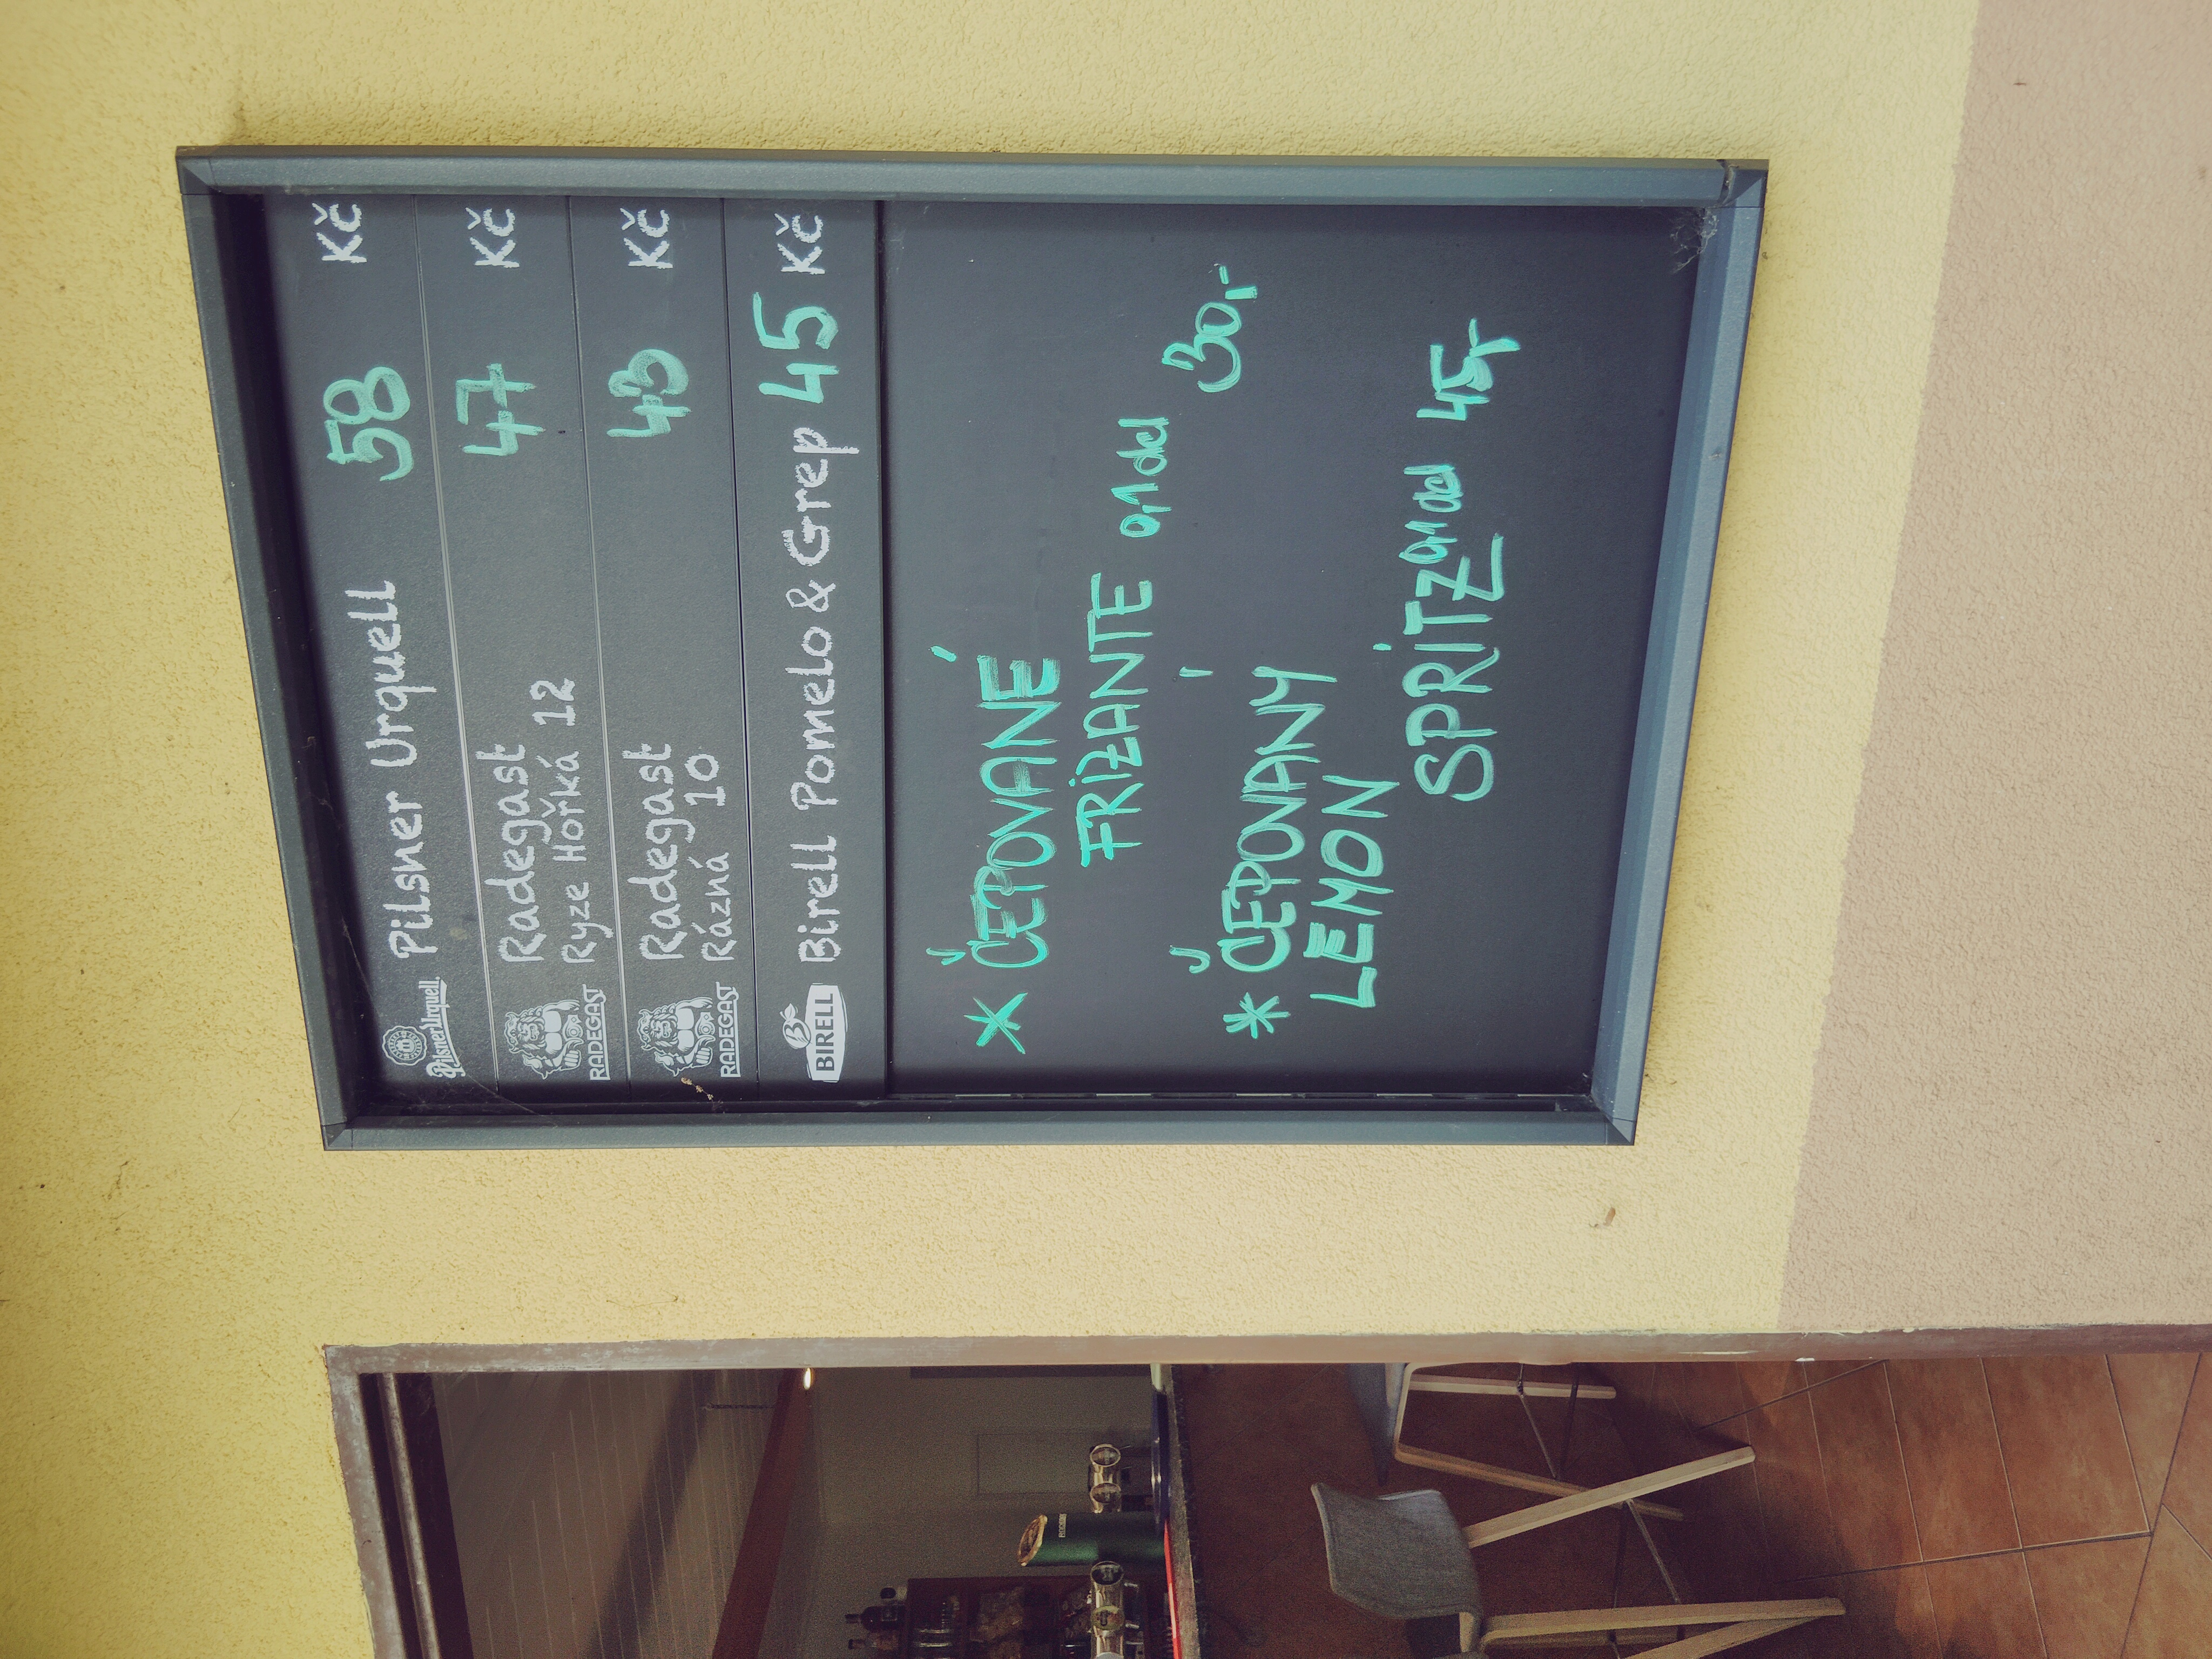 Pilsner Urquell Pilsner Urquell 58 Kč
RADEGAST Radegast 47 Kč
Ryze Hořká 12
RADEGAST Radegast 43 Kč
Rázná 10
BIRELL Birell Pomelo & Grep 45 Kč
* ČEPOVANÉ
FRIZANTE 0,1 dcl 30,-
* ČEPOVANÝ
LEMON
SPRITZ 0,1 dcl 45,-